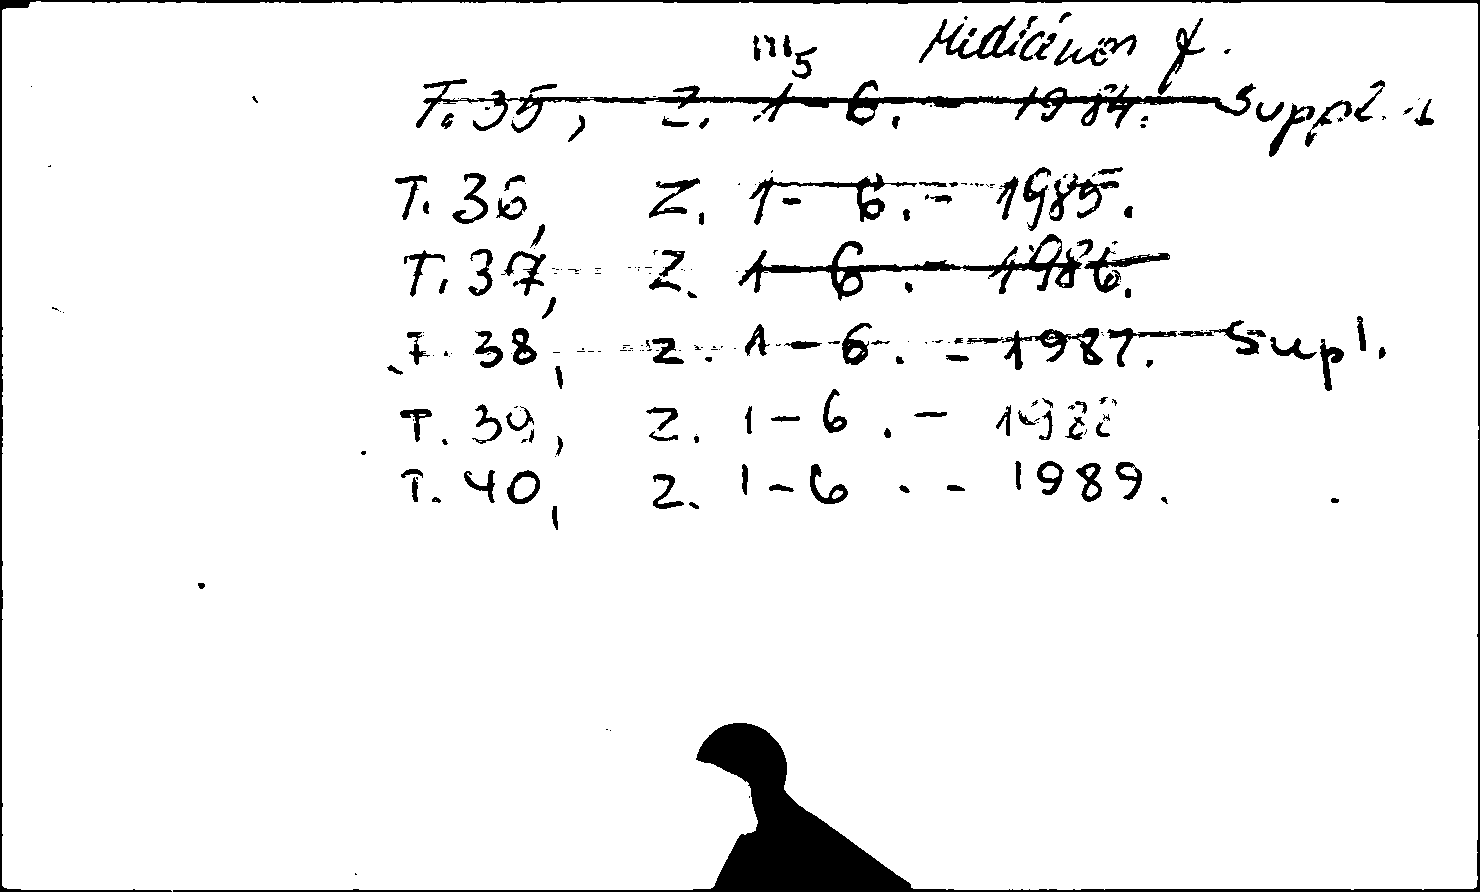 Medicinos f.
T. 35, Z. 1-6. - 1984. Suppl. 1
T. 36, Z. 1- 6. - 1985.
T. 37, Z. 1-6. - 1986.
T. 38, Z. 1-6. - 1987. Supl.
T. 39, Z. 1-6. - 1988
T. 40, Z. 1-6. - 1989.